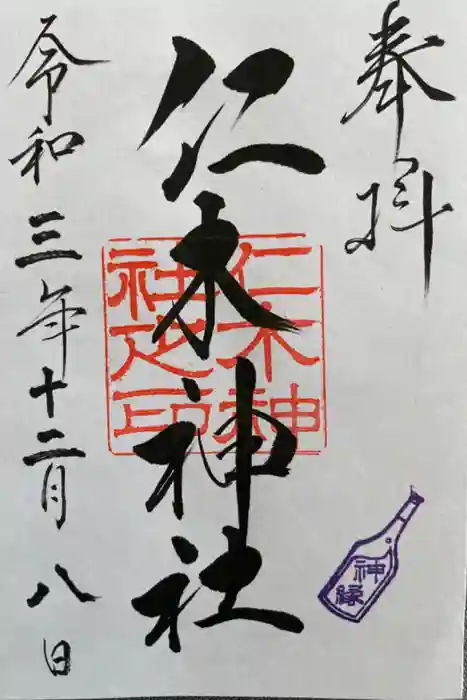 奉拝
仁木神社
仁木神
社之印
令和三年十二月八日
神
縁